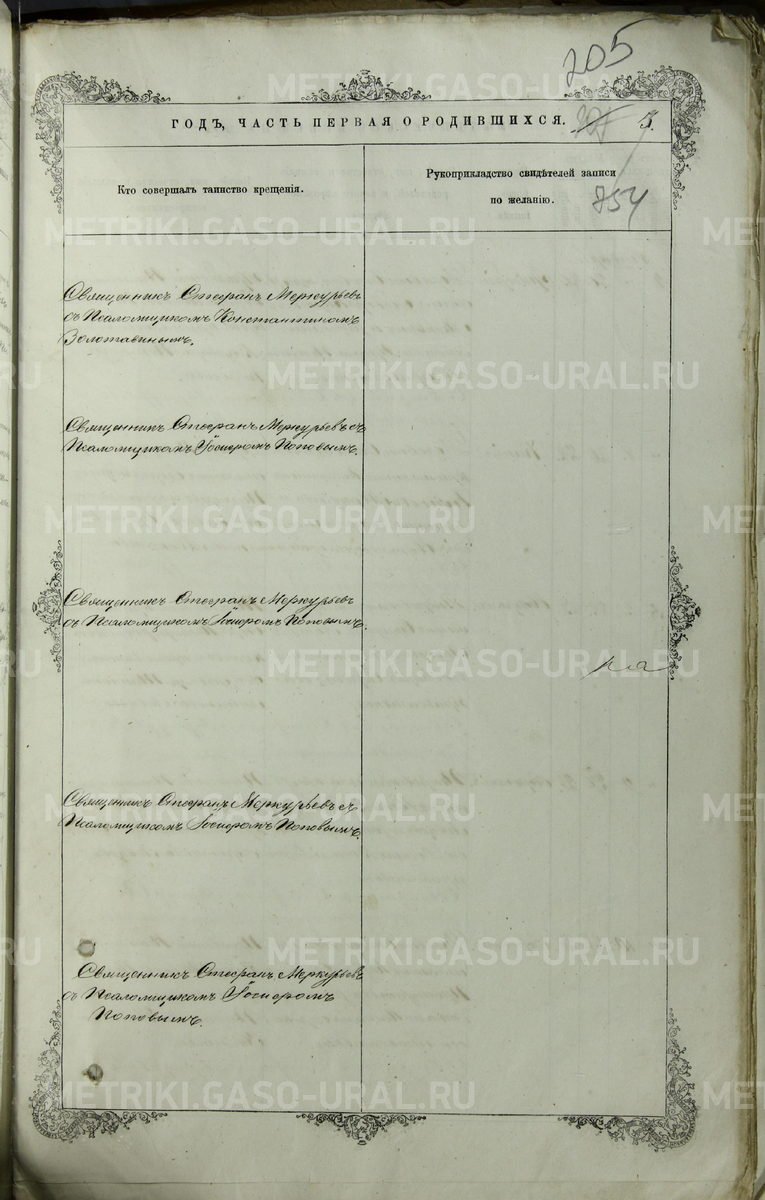 205
ГОДЪ, ЧАСТЬ ПЕРВАЯ О РОДИВШИХСЯ. 3.
Кто совершалъ таинство крещенія.
Рукоприкладство свидѣтелей записи
по желанію.
854
Священникъ Стефанъ Меркурьевъ
съ Псаломщикомъ Константиномъ
Золотавинымъ.
Священникъ Стефанъ Меркурьевъ съ
Псаломщикомъ Іосифомъ Поповымъ.
Священникъ Стефанъ Меркурьевъ
съ Псаломщикомъ Іосифомъ Поповымъ.
Священникъ Стефанъ Меркурьевъ съ
Псаломщикомъ Іосифомъ Поповымъ.
Священникъ Стефанъ Меркурьевъ
съ Псаломщикомъ Іосифомъ
Поповымъ.
METRIKI.GASO-URAL.RU